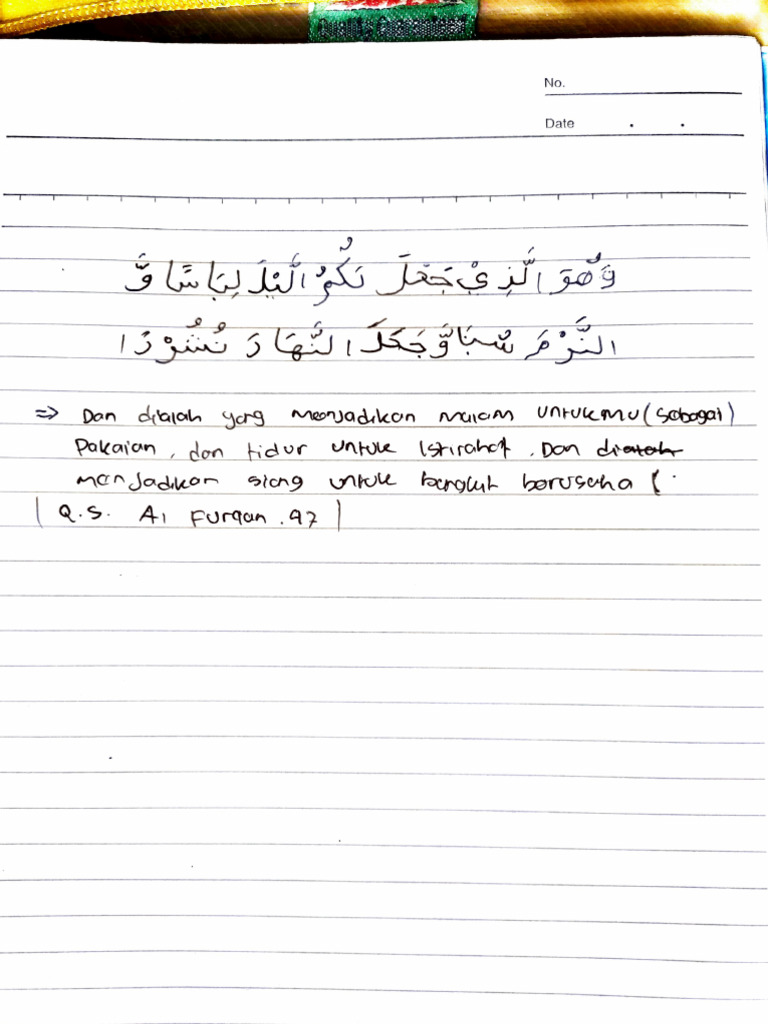 No.
Date . .
وَهُوَ الَّذِيْ جَعَلَ لَكُمُ الَّيْلَ لِبَاسًا وَّ
النَّوْمَ سُبَا وَّجَعَلَ النَّهَارَ نُشُوْرًا
=> Dan dialah yang menjadikan malam untukmu (sebagai)
Pakaian, dan tidur untuk istirahat. Dan
menjadikan siang untuk bangkit berusaha (.
| Q.S. Al Furqan .47 |